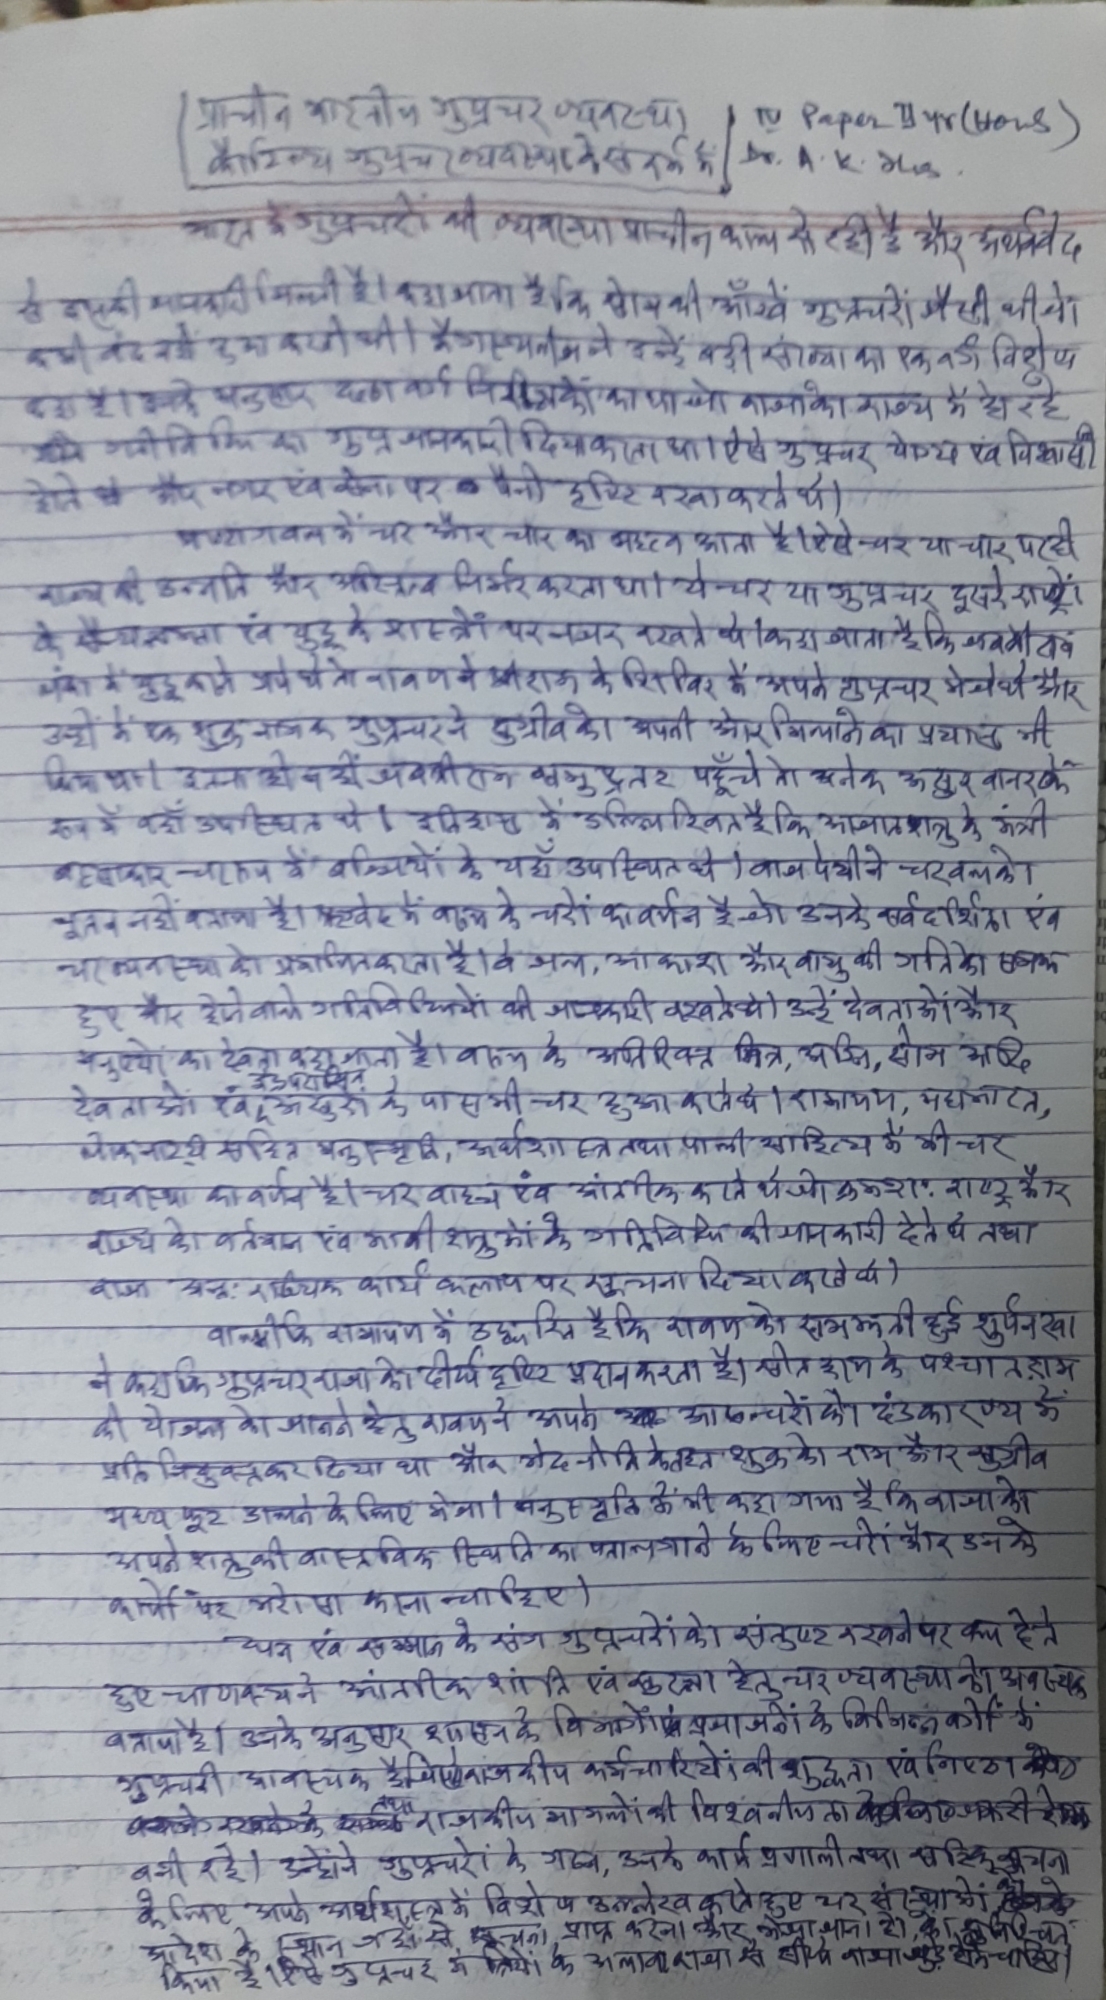 प्राचीन भारतीय गुप्तचर व्यवस्था IV Paper II yr (Hons)
कौटिल्य गुप्तचर व्यवस्था के संदर्भ में Dr. A. K. Jha.
भारत में गुप्तचरों की व्यवस्था प्राचीन काल से रही है और अथर्ववेद
से इसकी जानकारी मिलती है। कहा जाता है कि सोम की आँखें गुप्तचरों जैसी थी जो
कभी बंद नहीं हुआ करती थी। मेगास्थनीज ने इन्हें बड़ी संख्या का एक वर्ग विशेष
कहा है। उनके अनुसार छठा वर्ग निरीक्षकों का था जो राजा को राज्य में हो रहे
गतिविधि का गुप्त जानकारी दिया करता था। ऐसे गुप्तचर योग्य एवं विश्वासी
होते थे और नगर एवं सेना पर पैनी दृष्टि रखा करते थे।
में चर और चार का महत्व आता है। ऐसे चर या चार पर ही
राज्य की उन्नति और अस्तित्व निर्भर करता था। ये चर या गुप्तचर दूसरे राष्ट्रों
के एवं युद्ध के शास्त्रों पर नजर रखते थे। कहा जाता है कि जब
लंका में युद्ध करने गये थे तो रावण ने श्रीराम के शिविर में अपने गुप्तचर भेजे थे और
उन्हीं में एक शुक नामक गुप्तचर ने सुग्रीव को अपनी ओर मिलाने का प्रयास भी
किया था। इतना ही नहीं जब श्रीराम समुद्रतट पहुँचे तो अनेक असुर वानर के
रूप में वहाँ उपस्थित थे। इतिहास में उल्लिखित है कि अजातशत्रु के मंत्री
चररूप में वज्जियों के यहाँ उपस्थित थे। वाजपेयी ने चरबल को
नूतन नहीं बताया है। ऋग्वेद में वरुण के चरों का वर्णन है जो उनके सर्वदर्शिता एवं
चर व्यवस्था को प्रमाणित करता है। वे जल, आकाश और वायु की गति को समझ
हुए और होने वाले गतिविधियों की जानकारी रखते थे। उन्हें देवताओं और
मनुष्यों का देवता कहा जाता है। वरुण के अतिरिक्त मित्र, अग्नि, सोम आदि
देवताओं एवं असुरों के पास भी चर हुआ करते थे। रामायण, महाभारत,
सहित मनुस्मृति, अर्थशास्त्र तथा पाली साहित्य में भी चर
व्यवस्था का वर्णन है। चर वाह्य एवं आंतरिक करते थे जो क्रमशः राष्ट्र और
राज्य को वर्तमान एवं भावी शत्रुओं के गतिविधि की जानकारी देते थे तथा
कार्य कलाप पर सूचना दिया करते थे।
वाल्मीकि रामायण में उद्धरित है कि रावण को समझाती हुई शुर्पनखा
ने कहा कि गुप्तचर राजा को दीर्घ दृष्टि प्रदान करता है। सीताहरण के पश्चात राम
की योजना को जानने हेतु रावण ने अपने आठ चरों को दंडकारण्य में
प्रति नियुक्त कर दिया था और भेद नीति के तहत शुक को राम और सुग्रीव
मध्य फूट डालने के लिए भेजा। मनुस्मृति में भी कहा गया है कि राजा को
अपने शत्रु की वास्तविक स्थिति का पता लगाने के लिए चरों और उनके
कार्यों पर भरोसा करना चाहिए।
धन एवं सम्मान के संग गुप्तचरों को संतुष्ट रखने पर बल देते
हुए चाणक्य ने आंतरिक शांति एवं सुरक्षा हेतु चर व्यवस्था को आवश्यक
बताया है। उनके अनुसार शासन के विभागों एवं प्रजाजनों के विभिन्न वर्गों में
गुप्तचरी आवश्यक है जिससे राजकीय कर्मचारियों की शुद्धता एवं निष्ठा
तथा राजकीय मामलों की विश्वनीयता
बनी रहे। उन्होंने गुप्तचरों के गठन, उनके कार्य प्रणाली तथा सूचना
के लिए अपने अर्थशास्त्र में विशेष उल्लेख करते हुए चर संस्थाओं
आदेश के स्थान जहाँ से सूचना प्राप्त करना और भेजा जाना
किया है। ऐसे गुप्तचर मंत्रियों के अलावा राजा से सीधा